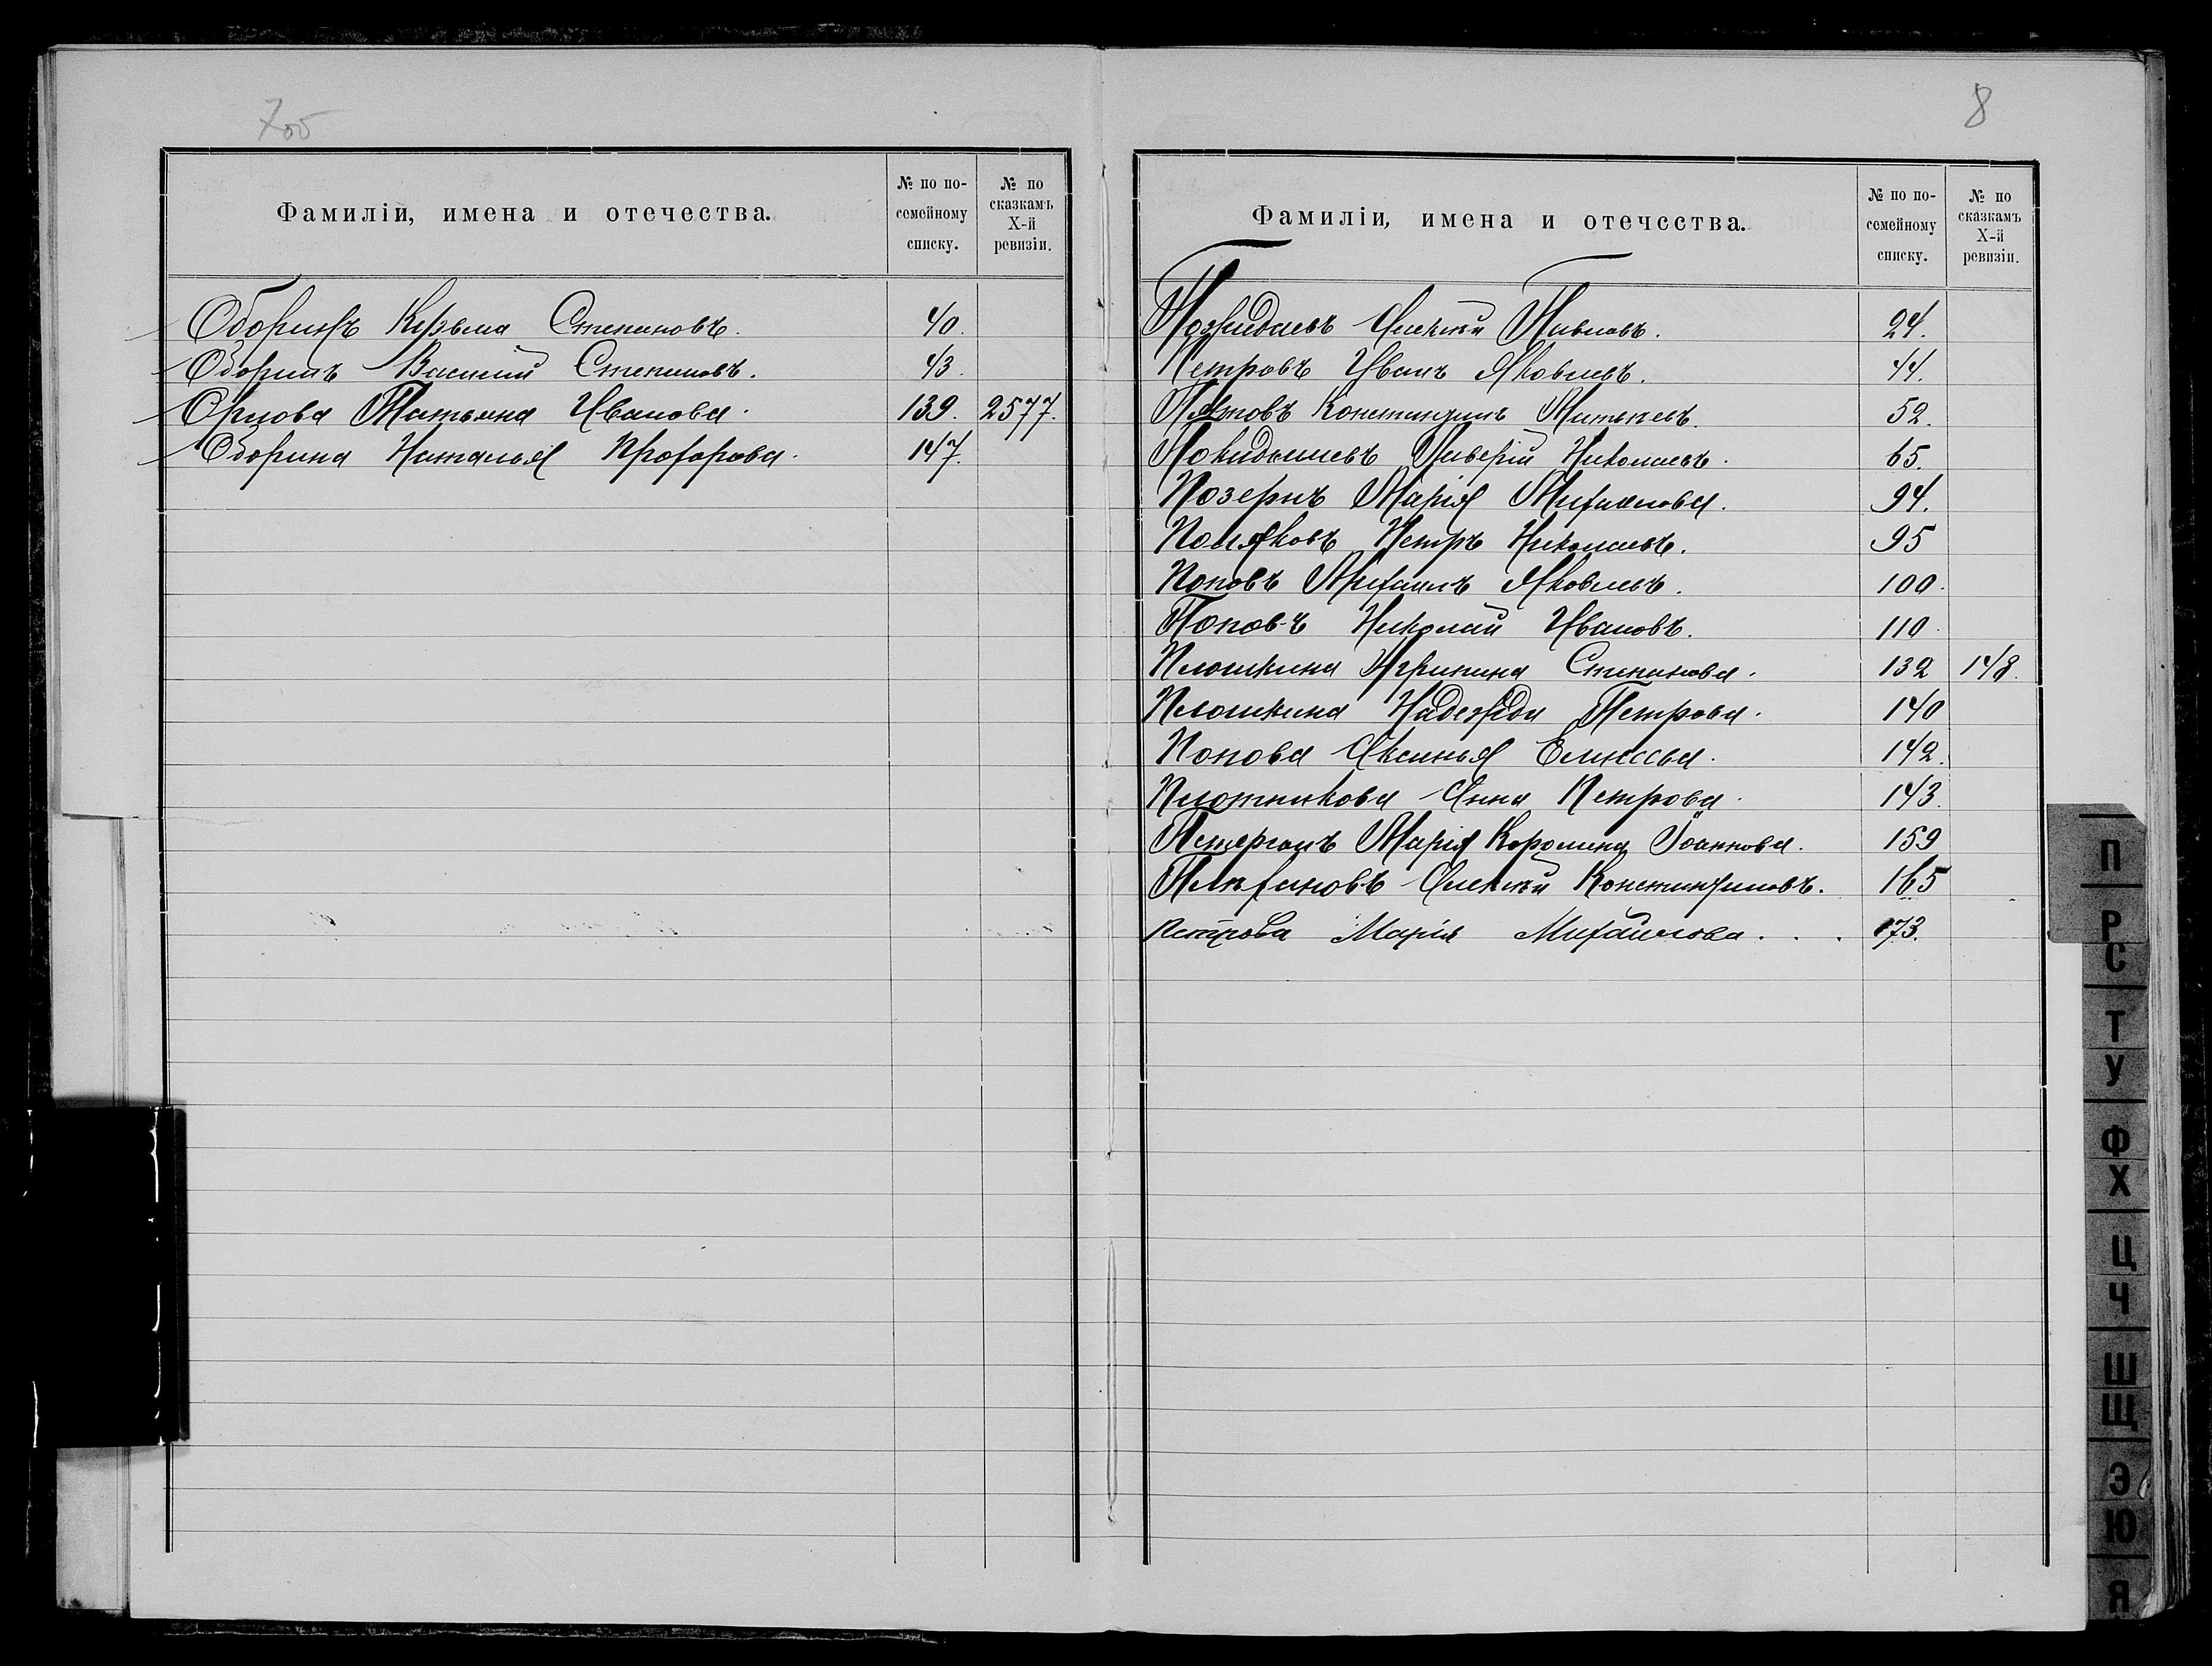 7об
Фамиліи, имена и отечества.
№ по по-
семейному
списку.
№ по
сказкамъ
Х-й
ревизіи.
Оборинъ Козьма Степановъ. 40.
Оборинъ Василій Степановъ. 43.
Орлова Татьяна Иванова. 139. 2577.
Оборина Наталья Прохорова. 147.
8
Фамиліи, имена и отечества.
№ по по-
семейному
списку.
№ по
сказкамъ
Х-й
ревизіи.
Пожидаевъ Алексѣй Павловъ. 24.
Петровъ Иванъ Яковлевъ. 44.
Константинъ Матвѣевъ. 52.
Ливерій Николаевъ. 65.
Позернъ Марія Михайлова. 94.
Поляковъ Петръ Николаевъ. 95
Поповъ Михаилъ Яковлевъ. 100.
Поповъ Николай Ивановъ. 110.
Плошкина Агрипина Степанова. 132 148.
Плошкина Надежда Петрова. 140
Попова Аксинья Елисѣева. 142.
Плотникова Анна Петрова. 143.
Марія Каролина Іоаннова. 159
Алексѣй Константиновъ. 165
Петрова Марія Михайлова . . . 173.
П
Р
С
Т
У
Ф
Х
Ц
Ч
Ш
Щ
Э
Ю
Я